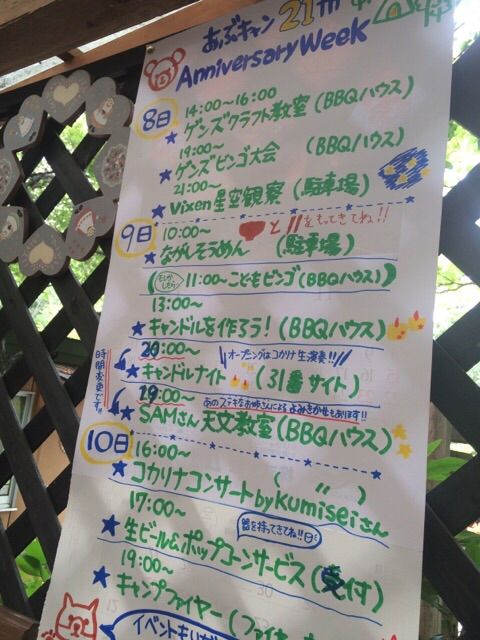 あぶキャン 21th
Anniversary Week
8日
14:00～16:00
★ ゲンズクラフト教室 (BBQハウス)
19:00～
★ ゲンズビンゴ大会 (BBQハウス)
21:00～
★ Vixen星空観察 (駐車場)
9日
10:00～ と をもってきてね!!
★ ながしそうめん (駐車場)
11:00～こどもビンゴ(BBQハウス)
13:00～
★ キャンドルを作ろう! (BBQハウス)
20:00～ オープニングはコカリナ生演奏!!
★ キャンドルナイト (31番サイト)
時間変更です!!
19:00～ あのステキなお姉さんによるよみきかせもあります!!
★ SAMさん 天文教室(BBQハウス)
10日
16:00～ ( 〃 )
★ コカリナコンサート by Kumiseiさん
17:00～ 器を持ってきてね!!
★ 生ビール&ポップコーンサービス (受付)
19:00～
★ キャンプファイヤー (ファイヤ
イベントもりだ